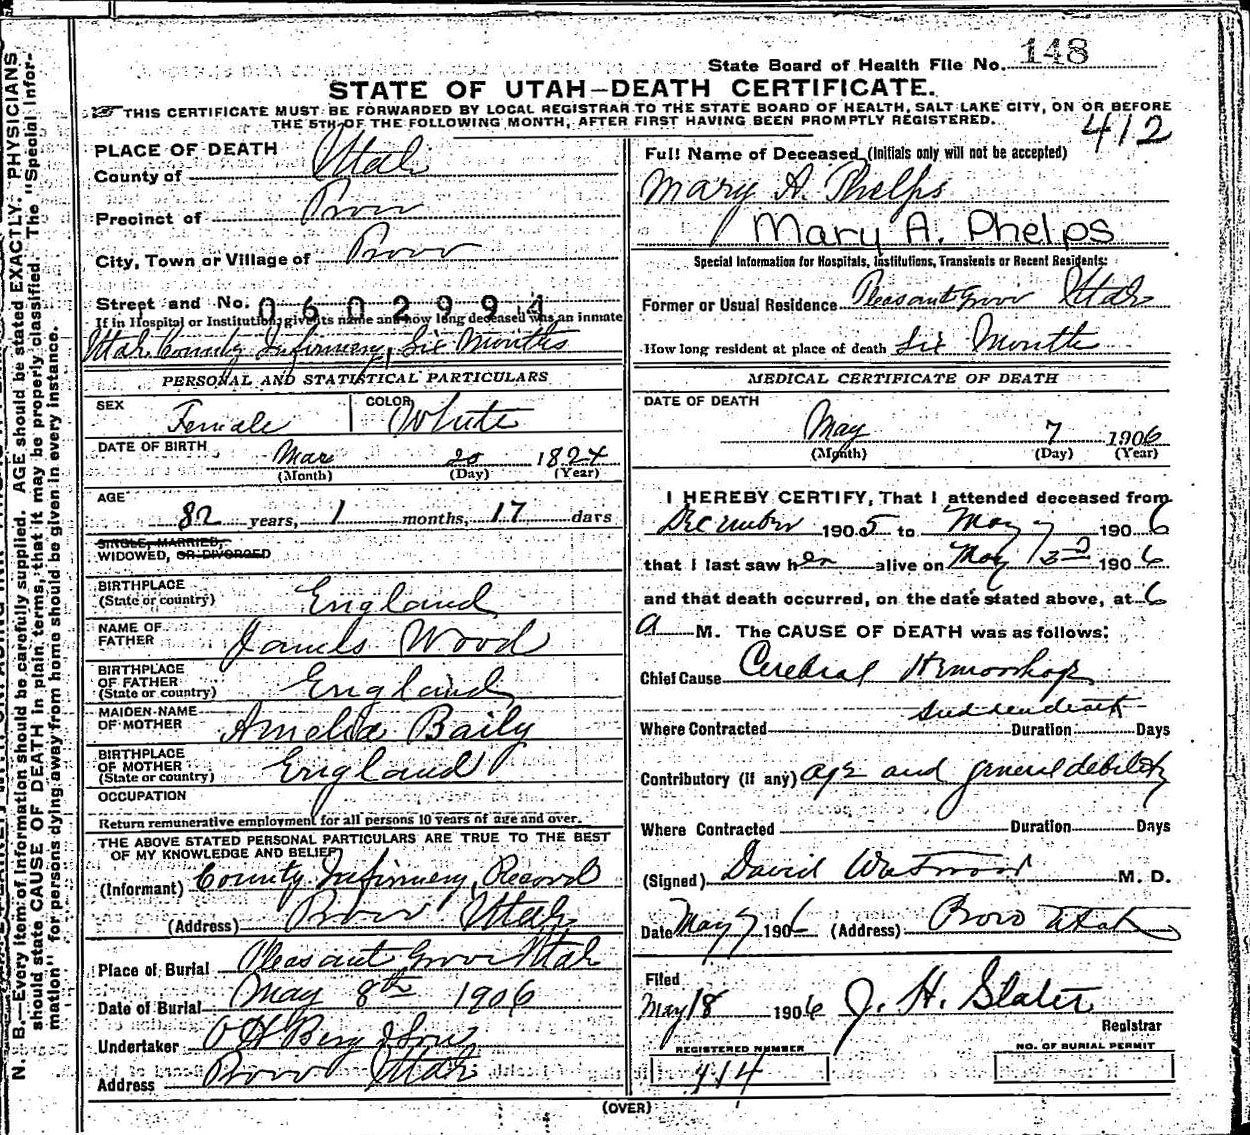 State Board of Health File No. 148
STATE OF UTAH—DEATH CERTIFICATE.
THIS CERTIFICATE MUST BE FORWARDED BY LOCAL REGISTRAR TO THE STATE BOARD OF HEALTH, SALT LAKE CITY, ON OR BEFORE
THE 5TH OF THE FOLLOWING MONTH, AFTER FIRST HAVING BEEN PROMPTLY REGISTERED.
412
PLACE OF DEATH
County of Utah
Precinct of Provo
City, Town or Village of Provo
Street and No. 0602994
If in Hospital or Institution, give its name and how long deceased was an inmate
Utah County Infirmery, Six Months
PERSONAL AND STATISTICAL PARTICULARS
SEX Female COLOR White
DATE OF BIRTH Mar 20 1824
(Month) (Day) (Year)
AGE
82 years, 1 months, 17 days
SINGLE, MARRIED,
WIDOWED, OR DIVORCED
BIRTHPLACE
(State or country) England
NAME OF
FATHER James Wood
BIRTHPLACE
OF FATHER
(State or country) England
MAIDEN-NAME
OF MOTHER Amelia Baily
BIRTHPLACE
OF MOTHER
(State or country) England
OCCUPATION
Return remunerative employment for all persons 10 years of age and over.
THE ABOVE STATED PERSONAL PARTICULARS ARE TRUE TO THE BEST
OF MY KNOWLEDGE AND BELIEF
(Informant) County Infirmery, Record
(Address) Provo Utah
Place of Burial Pleasant Grove Utah
Date of Burial May 8th 1906
Undertaker O H Berg & Son
Address Provo Utah
Full Name of Deceased (Initials only will not be accepted)
Mary A. Phelps
Mary A. Phelps
Special Information for Hospitals, Institutions, Transients or Recent Residents:
Former or Usual Residence Pleasant Grove Utah
How long resident at place of death Six Months
MEDICAL CERTIFICATE OF DEATH
DATE OF DEATH
May 7 1906
(Month) (Day) (Year)
I HEREBY CERTIFY, That I attended deceased from
December 1905 to May 7 1906
that I last saw her alive on May 3rd 1906
and that death occurred, on the date stated above, at 6
a M. The CAUSE OF DEATH was as follows:
Chief Cause Cerebral Hemorrhage
sudden death
Where Contracted Duration Days
Contributory (if any) age and general debility
Where Contracted Duration Days
(Signed) David Westwood M. D.
Date May 7 1906 (Address) Provo Utah
Filed
May 18 1906 J. H. Slater
Registrar
REGISTERED NUMBER
414
NO. OF BURIAL PERMIT
(OVER)
N. B.—Every item of information should be carefully supplied. AGE should be stated EXACTLY. PHYSICIANS
should state CAUSE OF DEATH in plain terms, that it may be properly classified. The "Special Infor-
mation" for persons dying away from home should be given in every instance.